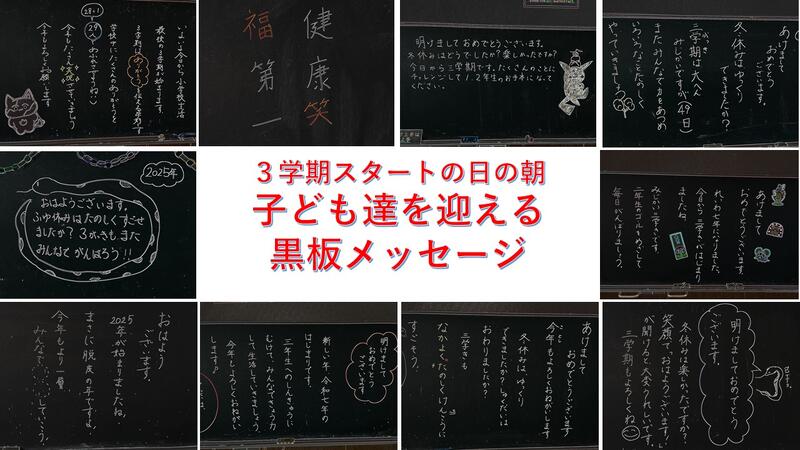 28+1
29人
いよいよ今日から小学校生活
最後の3学期が始まります。
3学期は「ありがとう」を伝える学期です。
学校中にたくさんのありがとうを
あふれさせますね♡
今年もたくさん笑顔ですごしましょう
今年もよろしくお願いします
健康笑
福第一
明けましておめでとうございます。
冬休みはどうでしたか?楽しかったですか?
今日から三学期です。たくさんのことに
チャレンジして1、2年生のお手本になって
ください。
あけまして
おめでとうございます。
冬休みはゆっくり
できましたか?
三学期は大へん
みじかいですが(49日)
またみんなで力をあつめ
いろいろなことたのしく
やっていきましょう。
2025年
おはようございます。
ふゆ休みはたのしくすごせ
ましたか?3がっきもまた
みんなと がんばろう!!
3学期スタートの日の朝
子ども達を迎える
黒板メッセージ
あけまして
おめでとうございます。
れいわ七年になりました。
今日から三学きがはじまり
ましたね。
みじかい三学きです。
二年生のゴールをめざして
毎日がんばりましょう。
おはよう
ございます。
2025年が始まりましたね。
まさに脱皮の年ですよ。
今年もより一層、
みんなで
していこう!
明けまして
おめでとう
ございます
新しい年、令和七年の
はじまりです。
三年生へのしんきゅうに
むけて、みんなできょう力
して生活していきましょう。
今年もよろしくおねがい
します。
あけまして
おめでとうございます
今年もよろしくおねがいします
冬休みはゆっくり
できましたか?しゅくだいは
おわりましたか?
三学きも
なかよくたのしくけんこうに
すごそう。
明けましておめでとう
ございます。
冬休みは楽しめたですか?
笑顔でおはようございます!
が聞けると大変うれしいです。
三学期もよろしくね